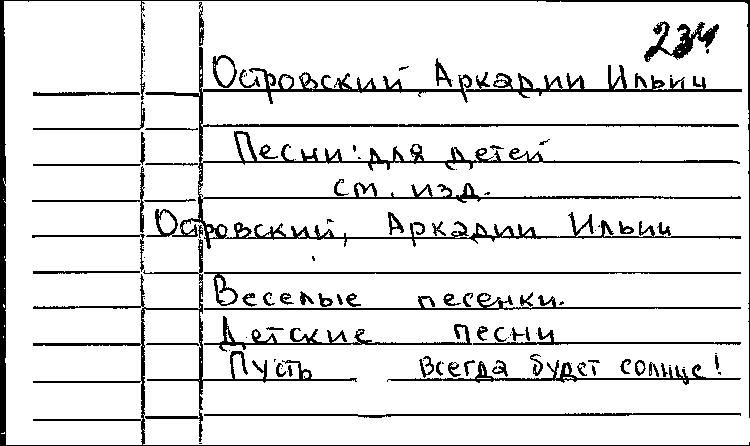 234
Островский, Аркадии Ильич
Песни: для детей
см. изд.
Островский, Аркадии Ильич
Веселые песенки.
Детские песни
Пусть всегда будет солнце!